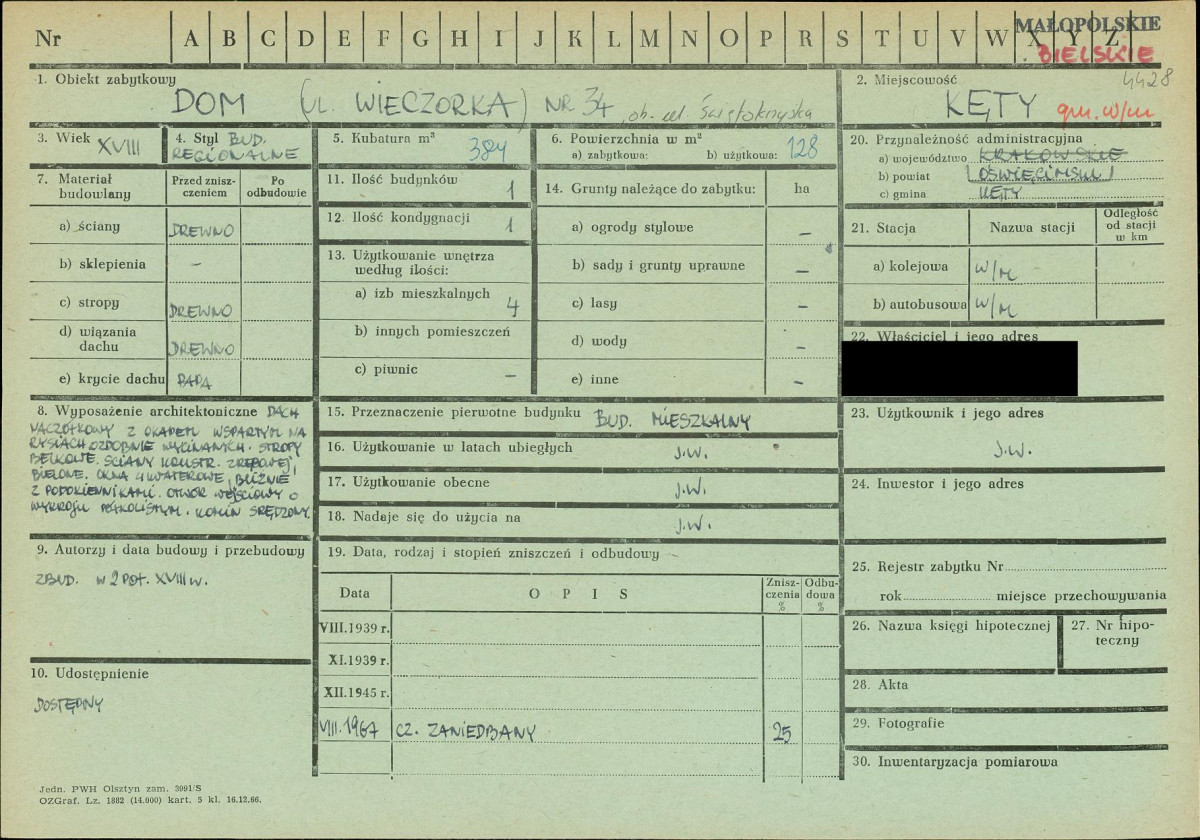 Nr A B C D E F G H I J K L M N O P R S T U V W X Y Z
MAŁOPOLSKIE
BIELSKIE
1. Obiekt zabytkowy
DOM (UL. WIECZORKA) NR 34, ob. ul. Świętokrzyska
2. Miejscowość
4428
KĘTY gm. w/m
3. Wiek XVIII
4. Styl BUD. REGIONALNE
5. Kubatura m³ 384
6. Powierzchnia w m²
a) zabytkowa: b) użytkowa: 128
7. Materiał budowlany
Przed zniszczeniem
Po odbudowie
a) ściany DREWNO
b) sklepienia –
c) stropy DREWNO
d) wiązania dachu DREWNO
e) krycie dachu PAPA
11. Ilość budynków 1
12. Ilość kondygnacji 1
13. Użytkowanie wnętrza według ilości:
a) izb mieszkalnych 4
b) innych pomieszczeń
c) piwnic –
14. Grunty należące do zabytku: ha
a) ogrody stylowe –
b) sady i grunty uprawne –
c) lasy –
d) wody –
e) inne –
20. Przynależność administracyjna
a) województwo KRAKOWSKIE
b) powiat OŚWIĘCIMSKI
c) gmina KĘTY
21. Stacja
Nazwa stacji
Odległość od stacji w km
a) kolejowa W/M
b) autobusowa W/M
22. Właściciel i jego adres
8. Wyposażenie architektoniczne DACH
NACZÓŁKOWY Z OKAPEM WSPARTYM NA
RYSIACH OZDOBNIE WYCINANYCH. STROPY
BELKOWE. ŚCIANY KONSTR. ZRĘBOWEJ,
BIELONE. OKNA 4 KWATEROWE, BLIŹNIE
Z PODOKIENNIKAMI. OTWÓR WEJŚCIOWY O
WYKROJU PÓŁKOLISTYM. KOMIN ŚRĘDZONY.
15. Przeznaczenie pierwotne budynku BUD. MIESZKALNY
16. Użytkowanie w latach ubiegłych J.W.
17. Użytkowanie obecne J.W.
18. Nadaje się do użycia na J.W.
23. Użytkownik i jego adres
J.W.
24. Inwestor i jego adres
9. Autorzy i data budowy i przebudowy
ZBUD. W 2 POŁ. XVIII W.
10. Udostępnienie
DOSTĘPNY
19. Data, rodzaj i stopień zniszczeń i odbudowy
Data
O P I S
Zniszczenia %
Odbudowa %
VIII.1939 r.
XI.1939 r.
XII.1945 r.
VIII.1967 CZ. ZANIEDBANY 25
25. Rejestr zabytku Nr
rok miejsce przechowywania
26. Nazwa księgi hipotecznej
27. Nr hipoteczny
28. Akta
29. Fotografie
30. Inwentaryzacja pomiarowa
Jedn. PWH Olsztyn zam. 3991/S
OZGraf. Lz. 1882 (14.000) kart. 5 kl. 16.12.66.